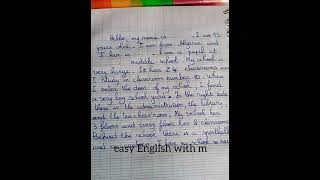 Hello my name is        . I am 13
years old. I am from Algeria and
I live in       . I am a pupil at
middle school. My school is
very large. It has 24 classrooms and
I study in classroom number 10. When I
enter the door of my school, I find
a very big school yard. To the right side
there is the administration, the library
and the teachers' room. My school has
3 floors and every floor has 8 classrooms
Behind the school there is a
and                I love my school so much
easy English with m